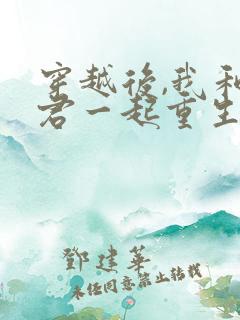 穿越后,我和
君一起重生
邓建华
未经同意禁止转载